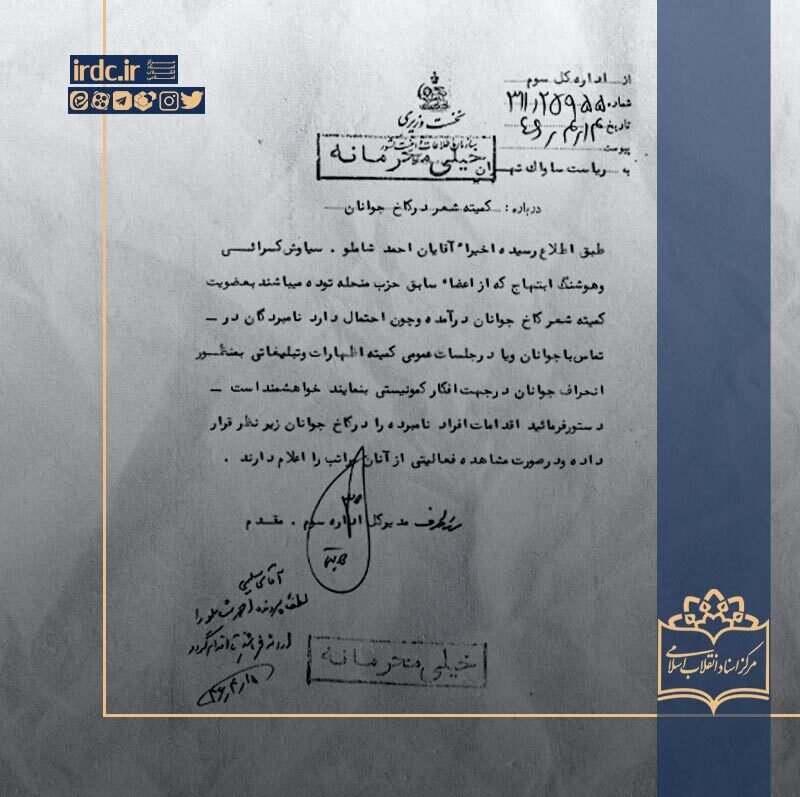 irdc.ir
مرکز اسناد انقلاب اسلامی
از اداره کل سوم
شماره ۳۱۱٫۲۵۹۵۵
تاریخ
پیوست
نخست وزیری
سازمان اطلاعات و امنیت کشور
خیلی محرمانه
به ریاست ساواک تهران
درباره : کمیته شعر در کاخ جوانان
طبق اطلاع رسیده اخیراً آقایان احمد شاملو . سیاوش کسرائی
وهوشنگ ابتهاج که از اعضاء سابق حزب منحله توده میباشند بعضویت
کمیته شعر کاخ جوانان درآمده وچون احتمال دارد نامبردگان در —
تماس با جوانان ویا در جلسات عمومی کمیته اظهارات وتبلیغاتی بمنظور
انحراف جوانان در جهت افکار کمونیستی بنمایند خواهشمند است —
دستورفرمائید اقدامات افراد نامبرده را در کاخ جوانان زیر نظر قرار
داده ودرصورت مشاهده فعالیتی از آنان مراتب را اعلام دارند .
مدیرکل اداره سوم . مقدم
آقای سلیمی
لطفاً پرونده احمد شاملو را
خیلی محرمانه
مرکز اسناد انقلاب اسلامی